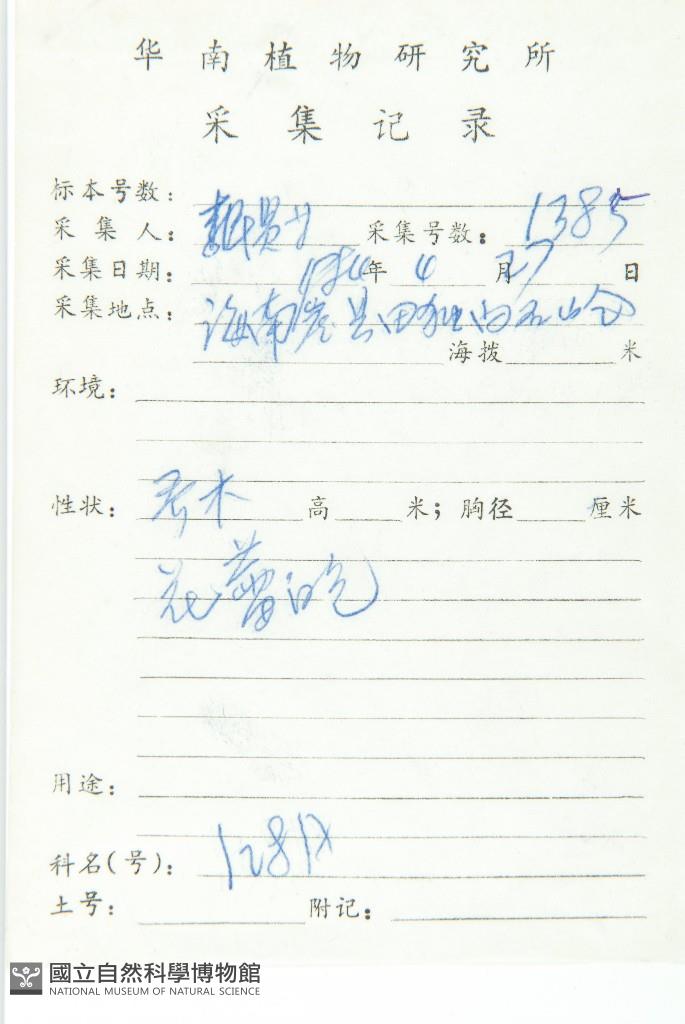 华南植物研究所
采集记录
标本号数：
采集人： 采集号数： 1385
采集日期： 年 4 月 27 日
采集地点： 海南崖县田独白石岭
海拨 米
环境：
性状： 乔木 高 米；胸径 厘米
花蕾白色
用途：
科名(号)：
土号： 附记：
國立自然科學博物館
NATIONAL MUSEUM OF NATURAL SCIENCE